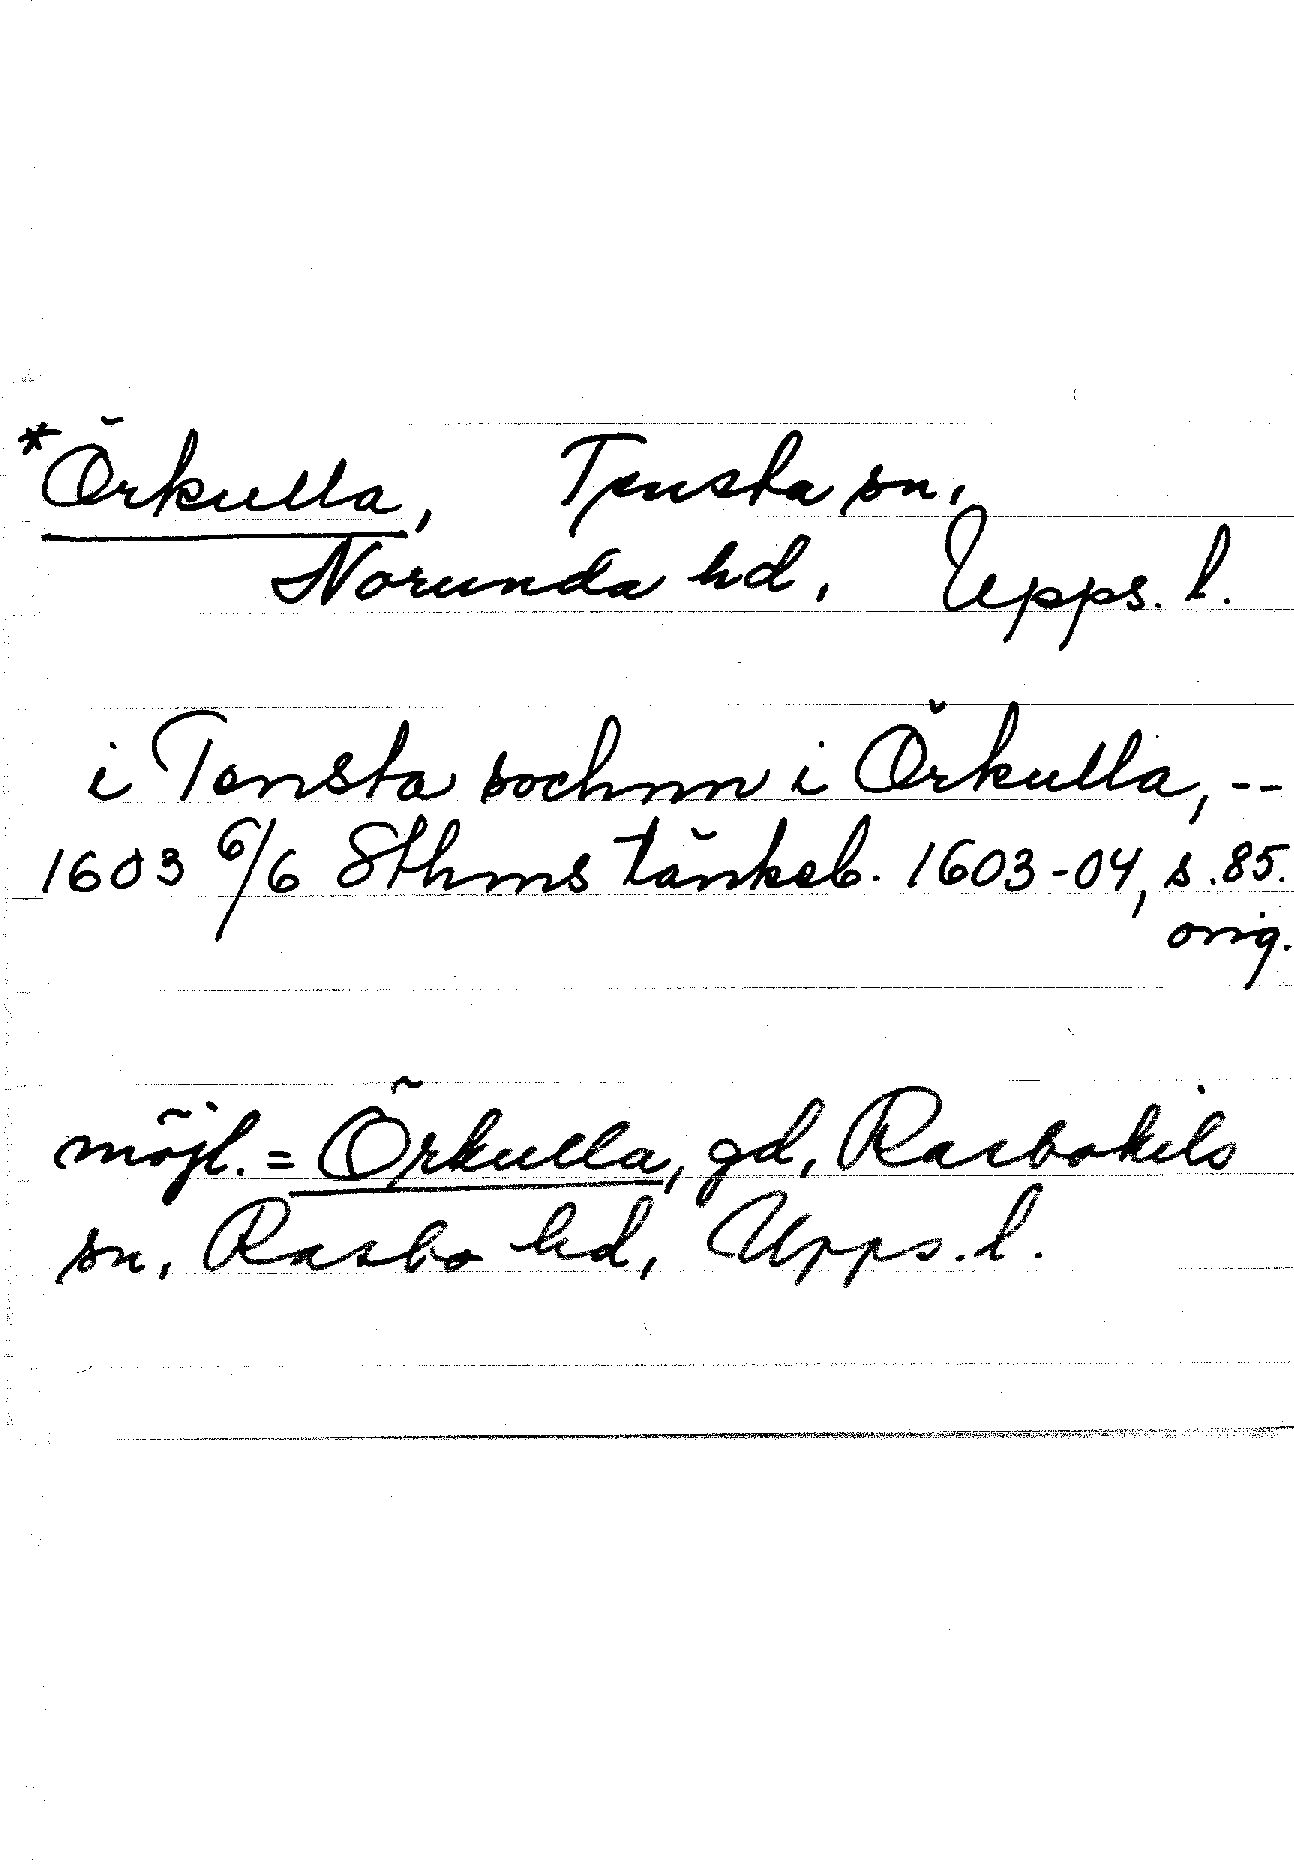 *Örkulla, Tensta sn,
Norunda hd, Upps. l.
i Tensta sochnn i Örkulla, --
1603 6/6 Sthms tänkeb. 1603-04, s. 85.
orig.
möjl. = Örkulla, gd, Rasbokils
sn, Rasbo hd, Upps. l.